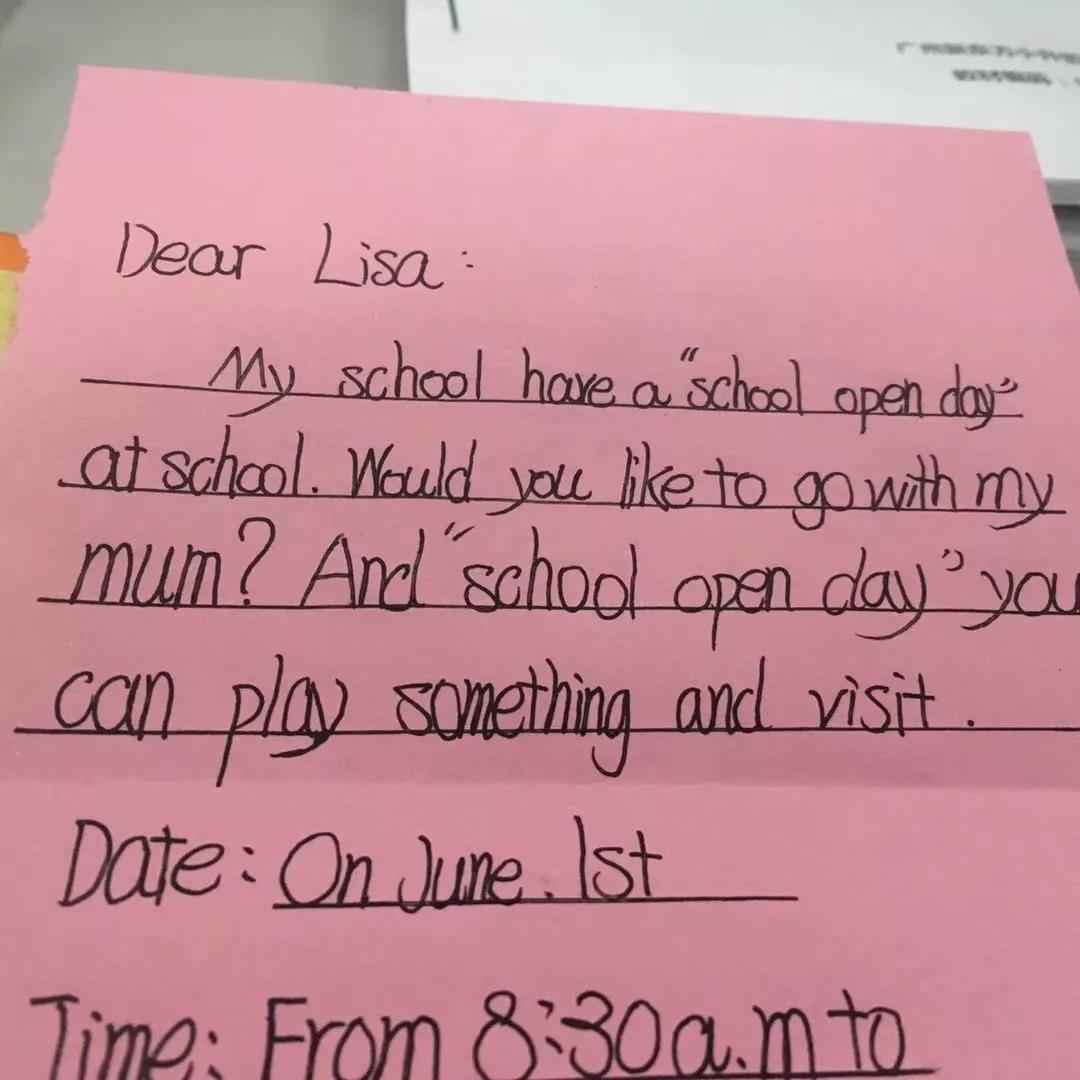 Dear Lisa:
My school have a "school open day"
at school. Would you like to go with my
mum? And "school open day" you
can play something and visit.
Date: On June. 1st
Time: From 8:30a.m to